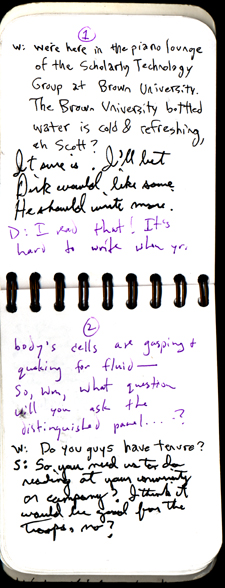 ①
W: Were here in the piano lounge
of the Scholarly Technology
Group at Brown University.
The Brown University bottled
water is cold & refreshing,
eh Scott?
It sure is. I'll bet
Dirk would like some.
He should write more.
D: I read that! It's
hard to write when yr.
②
body's cells are gasping &
quaking for fluid—
So, Wm, what question
will you ask the
distinguished panel....?
W: Do you guys have tenure?
S: So, you need us to do
reading at your university
or company? I think it
would be good for the
troops, no?